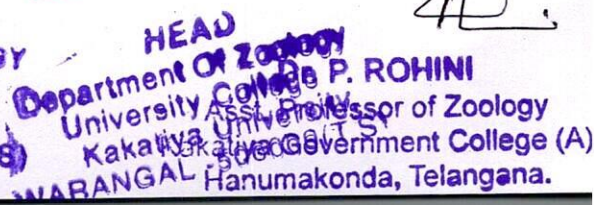 HEAD
Department Of Zoology
University College
Kakatiya University
WARANGAL
Dr. P. ROHINI
Asst. Professor of Zoology
Kakatiya Government College (A)
Hanumakonda, Telangana.